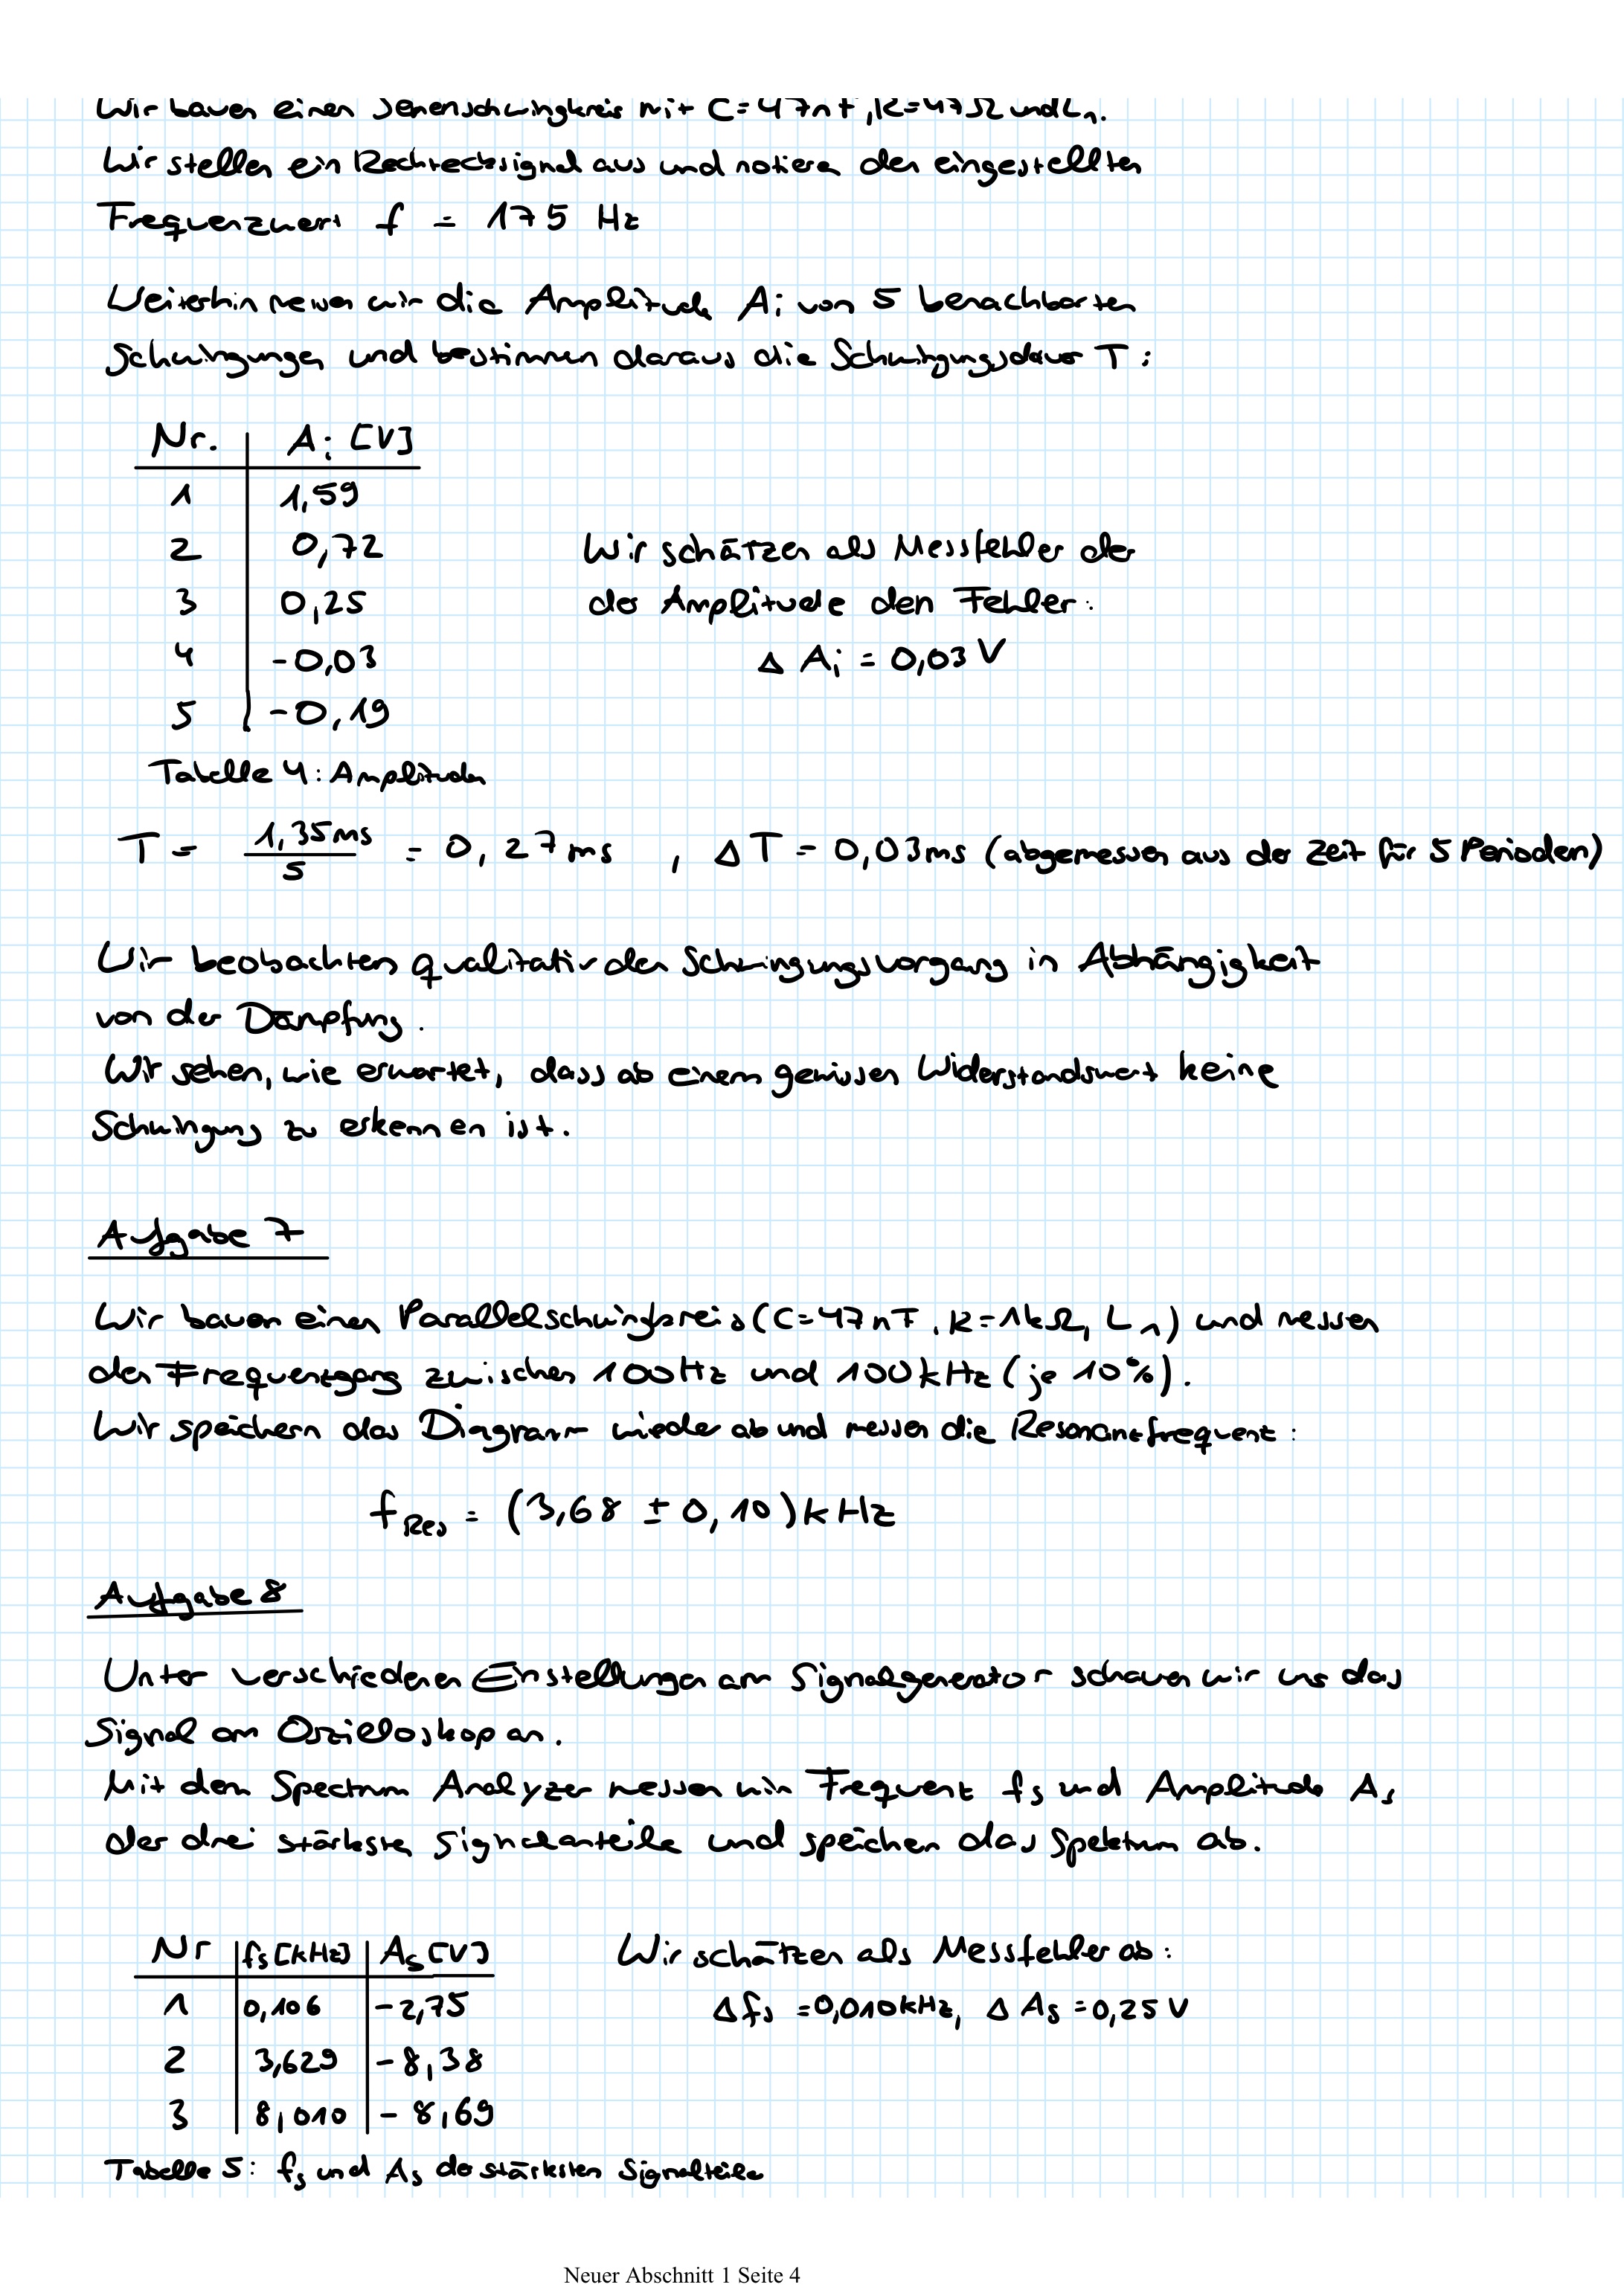 Wir bauen einen Serienschwingkreis mit C=47nF, R=47Ω und L₁.
Wir stellen ein Rechtecksignal aus und notieren den eingestellten
Frequenzwert f = 175 Hz
Weiterhin messen wir die Amplitude Aᵢ von 5 benachbarten
Schwingungen und bestimmen daraus die Schwingungsdauer T:
Nr. Aᵢ [V]
1 1,59
2 0,72
3 0,25
4 -0,03
5 -0,19
Wir schätzen als Messfehler der
der Amplitude den Fehler:
Δ Aᵢ = 0,03 V
Tabelle 4: Amplituden
T = 1,35ms / 5 = 0,27 ms , ΔT = 0,03ms (abgemessen aus der Zeit für 5 Perioden)
Wir beobachten qualitativ den Schwingungsvorgang in Abhängigkeit
von der Dämpfung.
Wir sehen, wie erwartet, dass ab einem gewissen Widerstandswert keine
Schwingung zu erkennen ist.
Aufgabe 7
Wir bauen einen Parallelschwingkreis (C=47nF, R=1kΩ, L₁) und messen
den Frequenzgang zwischen 100Hz und 100kHz (je 10%).
Wir speichern das Diagramm wieder ab und messen die Resonanzfrequenz:
f_Res = (3,68 ± 0,10) kHz
Aufgabe 8
Unter verschiedenen Einstellungen am Signalgenerator schauen wir uns das
Signal am Oszilloskop an.
Mit dem Spectrum Analyzer messen wir Frequenz fₛ und Amplitude Aₛ
der drei stärksten Signalanteile und speichen das Spektrum ab.
Nr fₛ [kHz] Aₛ [V]
1 0,106 -2,75
2 3,629 -8,38
3 8,010 -8,69
Wir schätzen als Messfehler ab:
Δfₛ = 0,010kHz, Δ Aₛ = 0,25 V
Tabelle 5: fₛ und Aₛ der stärksten Signalteile
Neuer Abschnitt 1 Seite 4